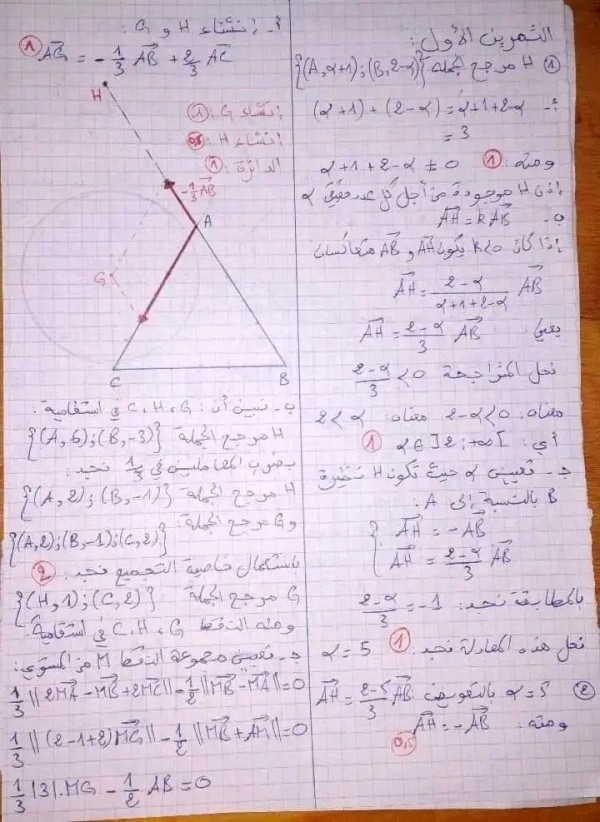 التمرين الأول:
① H مرجح الجملة {(A, α+1) ; (B, 2-α)}
أ- (α+1) + (2-α) = α+1+2-α
= 3
ومنه: α+1+2-α ≠ 0 ①
إذن H موجودة من أجل كل عدد حقيقي α
ب- AH = k AB
إذا كان k<0 يكون AH و AB متعاكسان
AH = (2-α)/(α+1+2-α) AB
يعني: AH = (2-α)/3 AB
نحل المتراجحة (2-α)/3 < 0
معناه: 2-α<0 معناه: 2<α
أي: α∈]2;+∞[ ①
ج- تعيين α حيث تكون H نظيرة
B بالنسبة إلى A:
{ AH = -AB
AH = (2-α)/3 AB
بالمطابقة نجد: (2-α)/3 = -1
نحل هذه المعادلة نجد: α = 5 ①
② α=5 بالتعويض AH = (2-5)/3 AB
ومنه: AH = -AB
0,5
أ- إنشاء H و G:
① AG = -1/3 AB + 2/3 AC
H
إنشاء G: ①
إنشاء H: 0,5
الدائرة: ①
-1/3 AB
A
G
C
B
ب- نبين أن: C, H, G في استقامية:
H مرجح الجملة {(A, 6) ; (B, -3)}
بضرب المعاملين في 1/3 نجد:
H مرجح الجملة {(A, 2) ; (B, -1)}
و G مرجح الجملة:
{(A,2);(B,-1);(C,2)}
باستعمال خاصية التجميع نجد: ②
G مرجح الجملة: {(H,1) ; (C,2)}
ومنه النقط C, H, G في استقامية.
ج- تعيين مجموعة النقط M من المستوي:
1/3 ||2MA - MB + 2MC|| - 1/2 ||MB - MA|| = 0
1/3 ||(2-1+2)MG|| - 1/2 ||MB + AM|| = 0
1/3 |3|.MG - 1/2 AB = 0